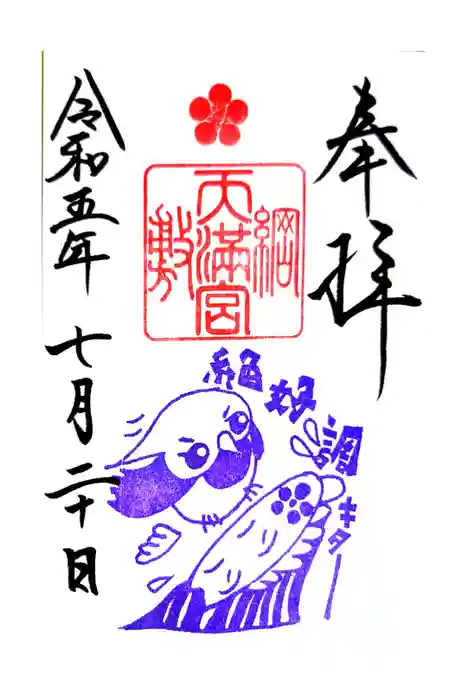 奉拝
綱敷天満宮
絶好調
キター
令和五年七月二十日